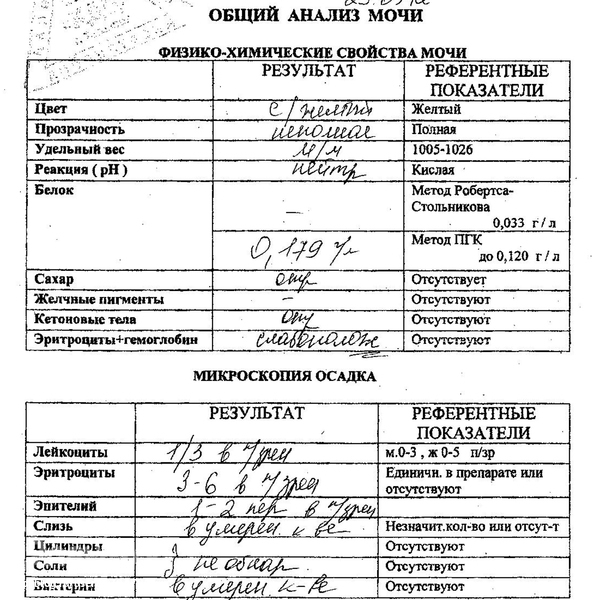 ОБЩИЙ АНАЛИЗ МОЧИ
ФИЗИКО-ХИМИЧЕСКИЕ СВОЙСТВА МОЧИ
РЕЗУЛЬТАТ РЕФЕРЕНТНЫЕ ПОКАЗАТЕЛИ
Цвет с/желтый Желтый
Прозрачность неполная Полная
Удельный вес м/м 1005-1026
Реакция ( pH ) нейтр Кислая
Белок – Метод Робертса-
Стольникова
0,033 г / л
0,179 г/л Метод ПГК
до 0,120 г / л
Сахар отр Отсутствует
Желчные пигменты – Отсутствуют
Кетоновые тела отр Отсутствуют
Эритроциты+гемоглобин слабополож Отсутствуют
МИКРОСКОПИЯ ОСАДКА
РЕЗУЛЬТАТ РЕФЕРЕНТНЫЕ ПОКАЗАТЕЛИ
Лейкоциты 1/3 в п/зрен м.0-3 , ж 0-5 п/зр
Эритроциты 3-6 в п/зрен Единичн. в препарате или
отсутствуют
Эпителий 1-2 в п/зрен
Слизь в умерен к-ве Незначит.кол-во или отсут-т
Цилиндры Отсутствуют
Соли не обнар Отсутствуют
Бактерии в умерен к-ве Отсутствуют